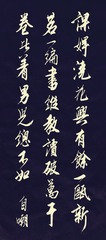 課婢澆花興有餘一甌新
茗一編書縱教讀破萬千
卷比着男兒總不如 自嘲